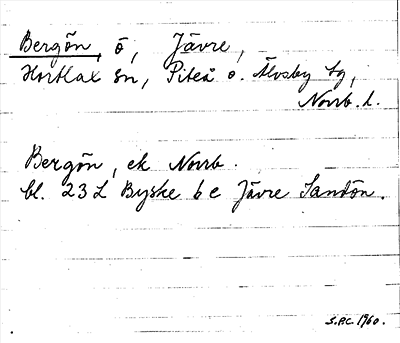 Bergön, ö, Jävre,
Hortlax sn, Piteå o. Älvsby tg,
Norrb. l.
Bergön, ek Norrb.
bl. 23 L Byske 6 e Jävre Sandön.
S.P.C. 1960.